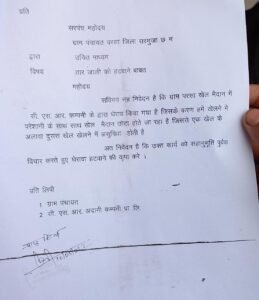 प्रति
सरपंच महोदय
ग्राम पंचायत परसा जिला सरगुजा छ ग
द्वारा उचित माध्यम
विषय तार जाली को हटवाने बाबत
महोदय
सविनय नम्र निवेदन है कि ग्राम परसा खेल मैदान में
सी. एस. आर. कम्पनी के द्वारा घेराव किया गया है जिसके कारण हमें खेलने में
परेशानी के साथ साथ खेल मैदान छोटा होते जा रहा है जिससे एक खेल के
अलावा दुसरा खेल खेलने में असुविधा होती है
अतः निवेदन है कि उक्त कार्य को सहानुभूति पूर्वक
विचार करते हुए घेरावा हटवाने की कृपा करें ।
प्रति लिपी
1 ग्राम पंचायत
2 सी. एस. आर. अदानी कम्पनी प्रा. लि.